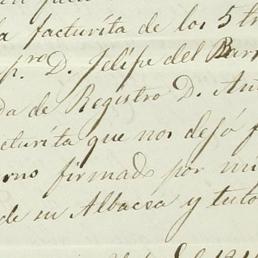 a facturita de los 5 tr
pro D. Felipe del Barr
da de Registro D. Ant
cturita que nos dejó f
rno firmado por mi
de su Albacea y tuto